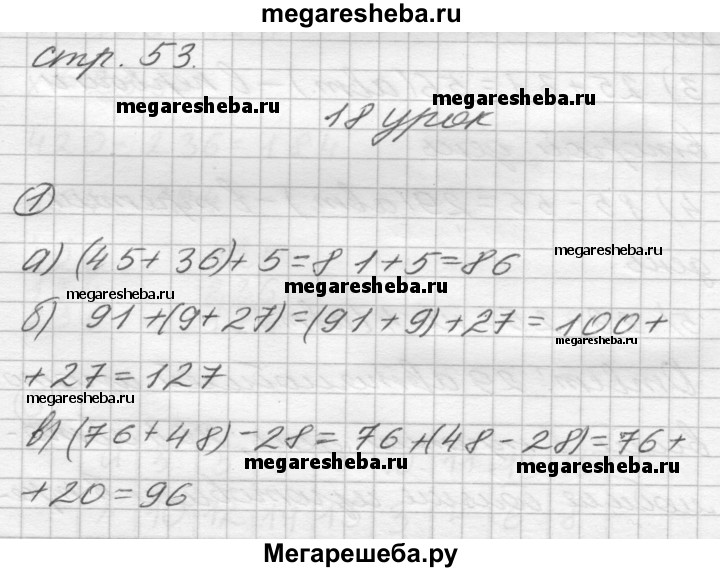 megaresheba.ru
стр. 53.
megaresheba.ru
megaresheba.ru
18 урок
1
а) (45+36)+5=81+5=86
megaresheba.ru
megaresheba.ru
megaresheba.ru
б) 91+(9+27)=(91+9)+27=100+
megaresheba.ru
+27=127
megaresheba.ru
в) (76+48)-28=76+(48-28)=76+
megaresheba.ru
megaresheba.ru
+20=96
Мегарешеба.ру